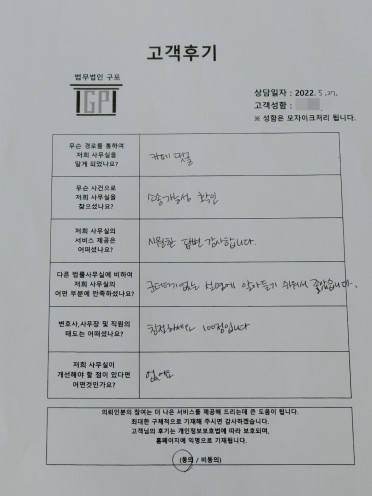 고객후기
법무법인 구포
GP
상담일자 : 2022. 5. 27.
고객성함 :
※ 성함은 모자이크처리 됩니다.
무슨 경로를 통하여
저희 사무실을
알게 되었나요?
카페 댓글
무슨 사건으로
저희 사무실을
찾으셨나요?
소송가능성 확인
저희 사무실의
서비스 제공은
어떠셨나요?
시원한 답변 감사합니다.
다른 법률사무실에 비하여
저희 사무실의
어떤 부분에 만족하셨나요?
군더더기없는 설명에 알아듣기 쉬워서 좋았습니다.
변호사,사무장 및 직원의
태도는 어떠셨나요?
친절하세요 100점입니다
저희 사무실이
개선해야 할 점이 있다면
어떤것인가요?
없어요
의뢰인분의 참여는 더 나은 서비스를 제공해 드리는데 큰 도움이 됩니다.
최대한 구체적으로 기재해 주시면 감사하겠습니다.
고객님의 후기는 개인정보보호법에 따라 보호되며,
홈페이지에 익명으로 기재됩니다.
(동의 / 비동의)